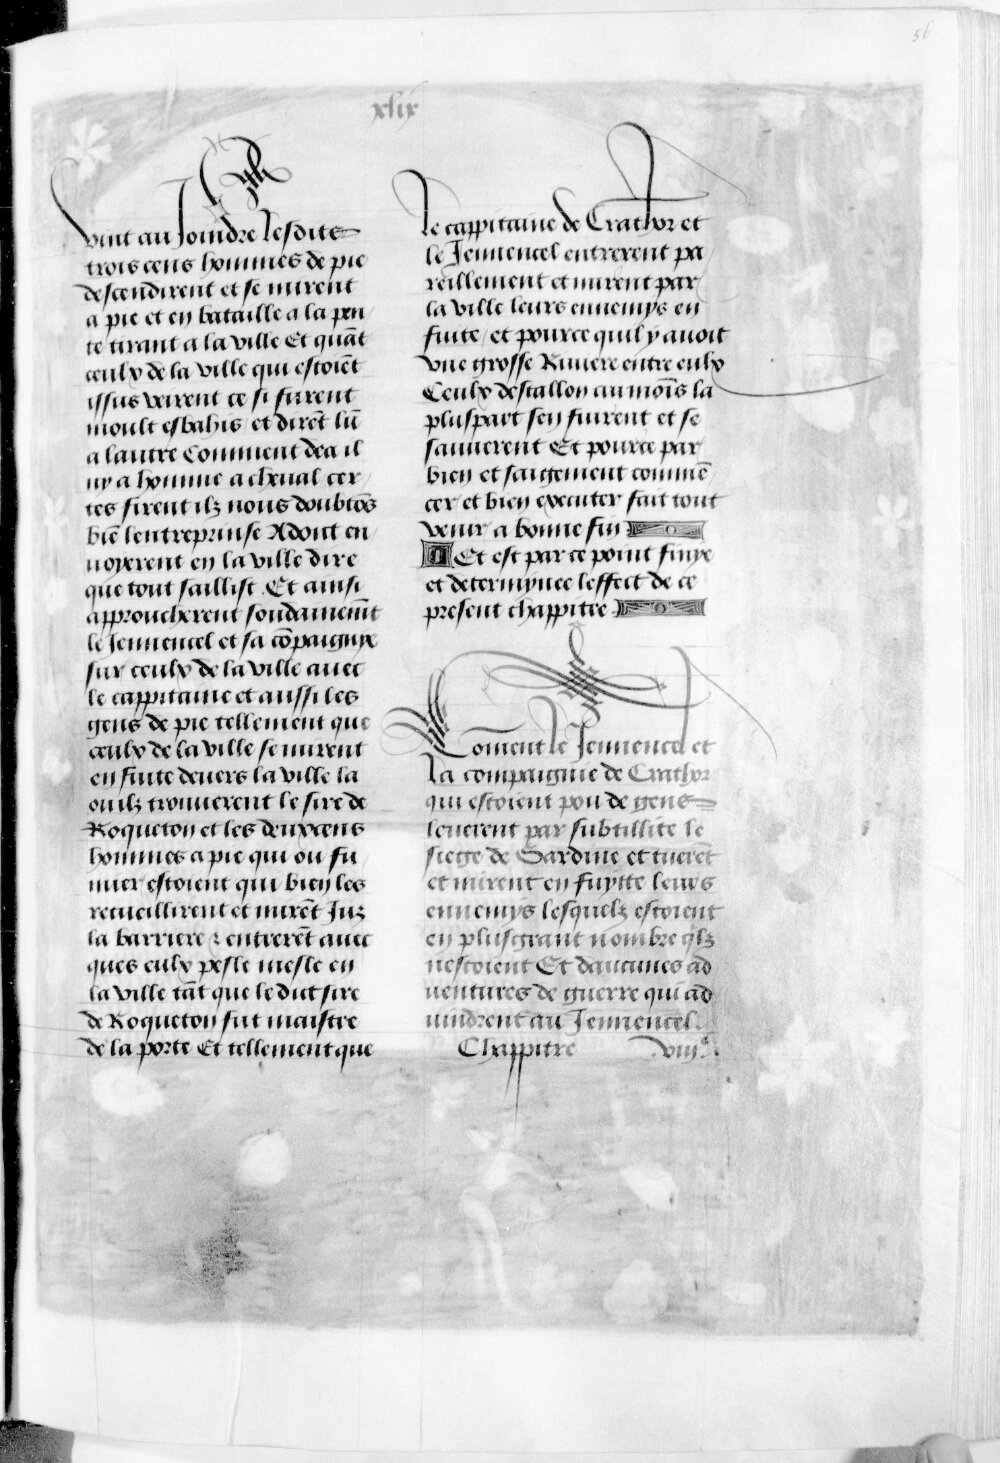 56
xlix
vint au Joindre lesdits
trois cens hommes de pie
descendirent et se mirent
a pie et en bataille a la pen
te tirant a la ville Et quāt
ceulx de la ville qui estoiēt
issus veirent ce si furent
moult esbahis / et dirēt lū
a lautre Comment dea il
ny a homme a cheval cer
tes sirent ilz nous doubtōs
biē lentreprinse Adont en
noyerent en la ville dire
que tout saillist. Et ainsi
approucherent soudainemēt
le Jennencel et sa cōpaignye
sur ceulx de la ville avec
le cappitaine et aussi les
gens de pie tellement que
ceulx de la ville se mirent
en fuite devers la ville la
ou ilz trouverent le sire de
Roqueton et les deux cens
hommes a pie qui ou fu
mier estoient qui bien les
recueillirent et mirēt Juz
la barriere & entrerēt avec
ques eulx pesle mesle en
la ville tāt que le dict sire
de Roqueton fut maistre
de la porte Et tellement que
le cappitaine de Crathor et
le Jennencel entrerent pa
reillement et mirent par
la ville leurs ennemys en
fuite / et pource quil y avoit
vne grosse Riviere entre eulx
Ceulx destallon au moīs la
pluspart sen fuirent et se
sauverent Et pource par
bien et saigement commē
cer et bien executer fait tout
venir a bonne fin
Et est par ce point finye
et determynee leffect de ce
present chappitre.
Coment le Jennencel et
la compaignie de Crathor
qui estoient pou de gens
leverent par subtillite le
siege de Sardine et tuerēt
et mirent en fuytte leurs
ennemys lesquelz estoient
en plus grant nombre qlz
nestoient Et daucunes ad
ventures de guerre qui ad
vindrent au Jennencel.
Chappitre .viij.e